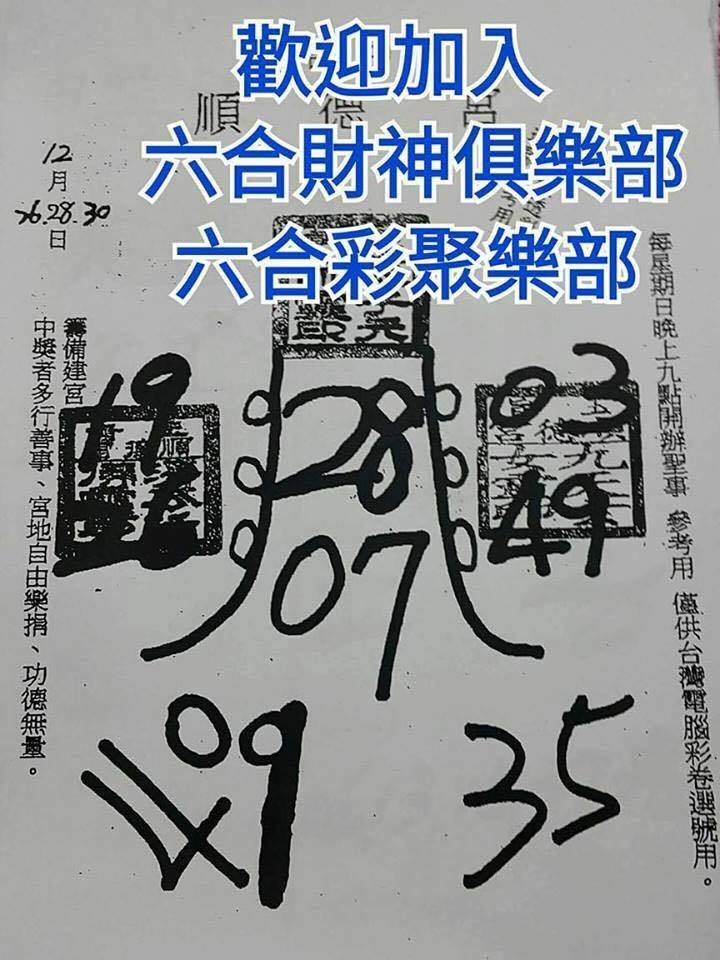 歡迎加入
六合財神俱樂部
六合彩聚樂部
順德宮
12
月
26.28.30
日
每星期日晚上九點開辦聖事 參考用 僅供台灣電腦彩卷選號用。
籌備建宮
中獎者多行善事、宮地自由樂捐、功德無量。
19
28
03
49
07
09
35